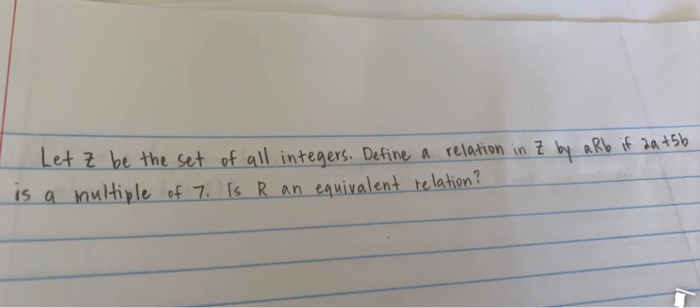 Let Z be the set of all integers. Define a relation in Z by aRb if 2a+5b
is a multiple of 7. Is R an equivalent relation?